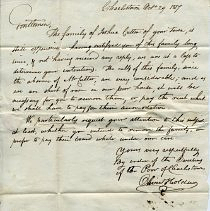 Charlestown Oct. 29 1817
Gentlemen,
The family of Joshua Cutter of your Town, is
still expensive, having notified you of this family long
since, & not having received any reply, we are at a loss to
determine your intentions. The wants of this family, since
the absence of Mr Cutter, are very considerable; and as
we are short of room in our poor house, it will be
necessary for you to remove them, or pay the rent which
we shall have to pay for their accommodation
We particularly request your attention to this subject
at least, whether you intend to remove the family, or
prefer to pay their board while under our care.
Yours very respectfully
By order of the Overseers
of the Poor of Charlestown